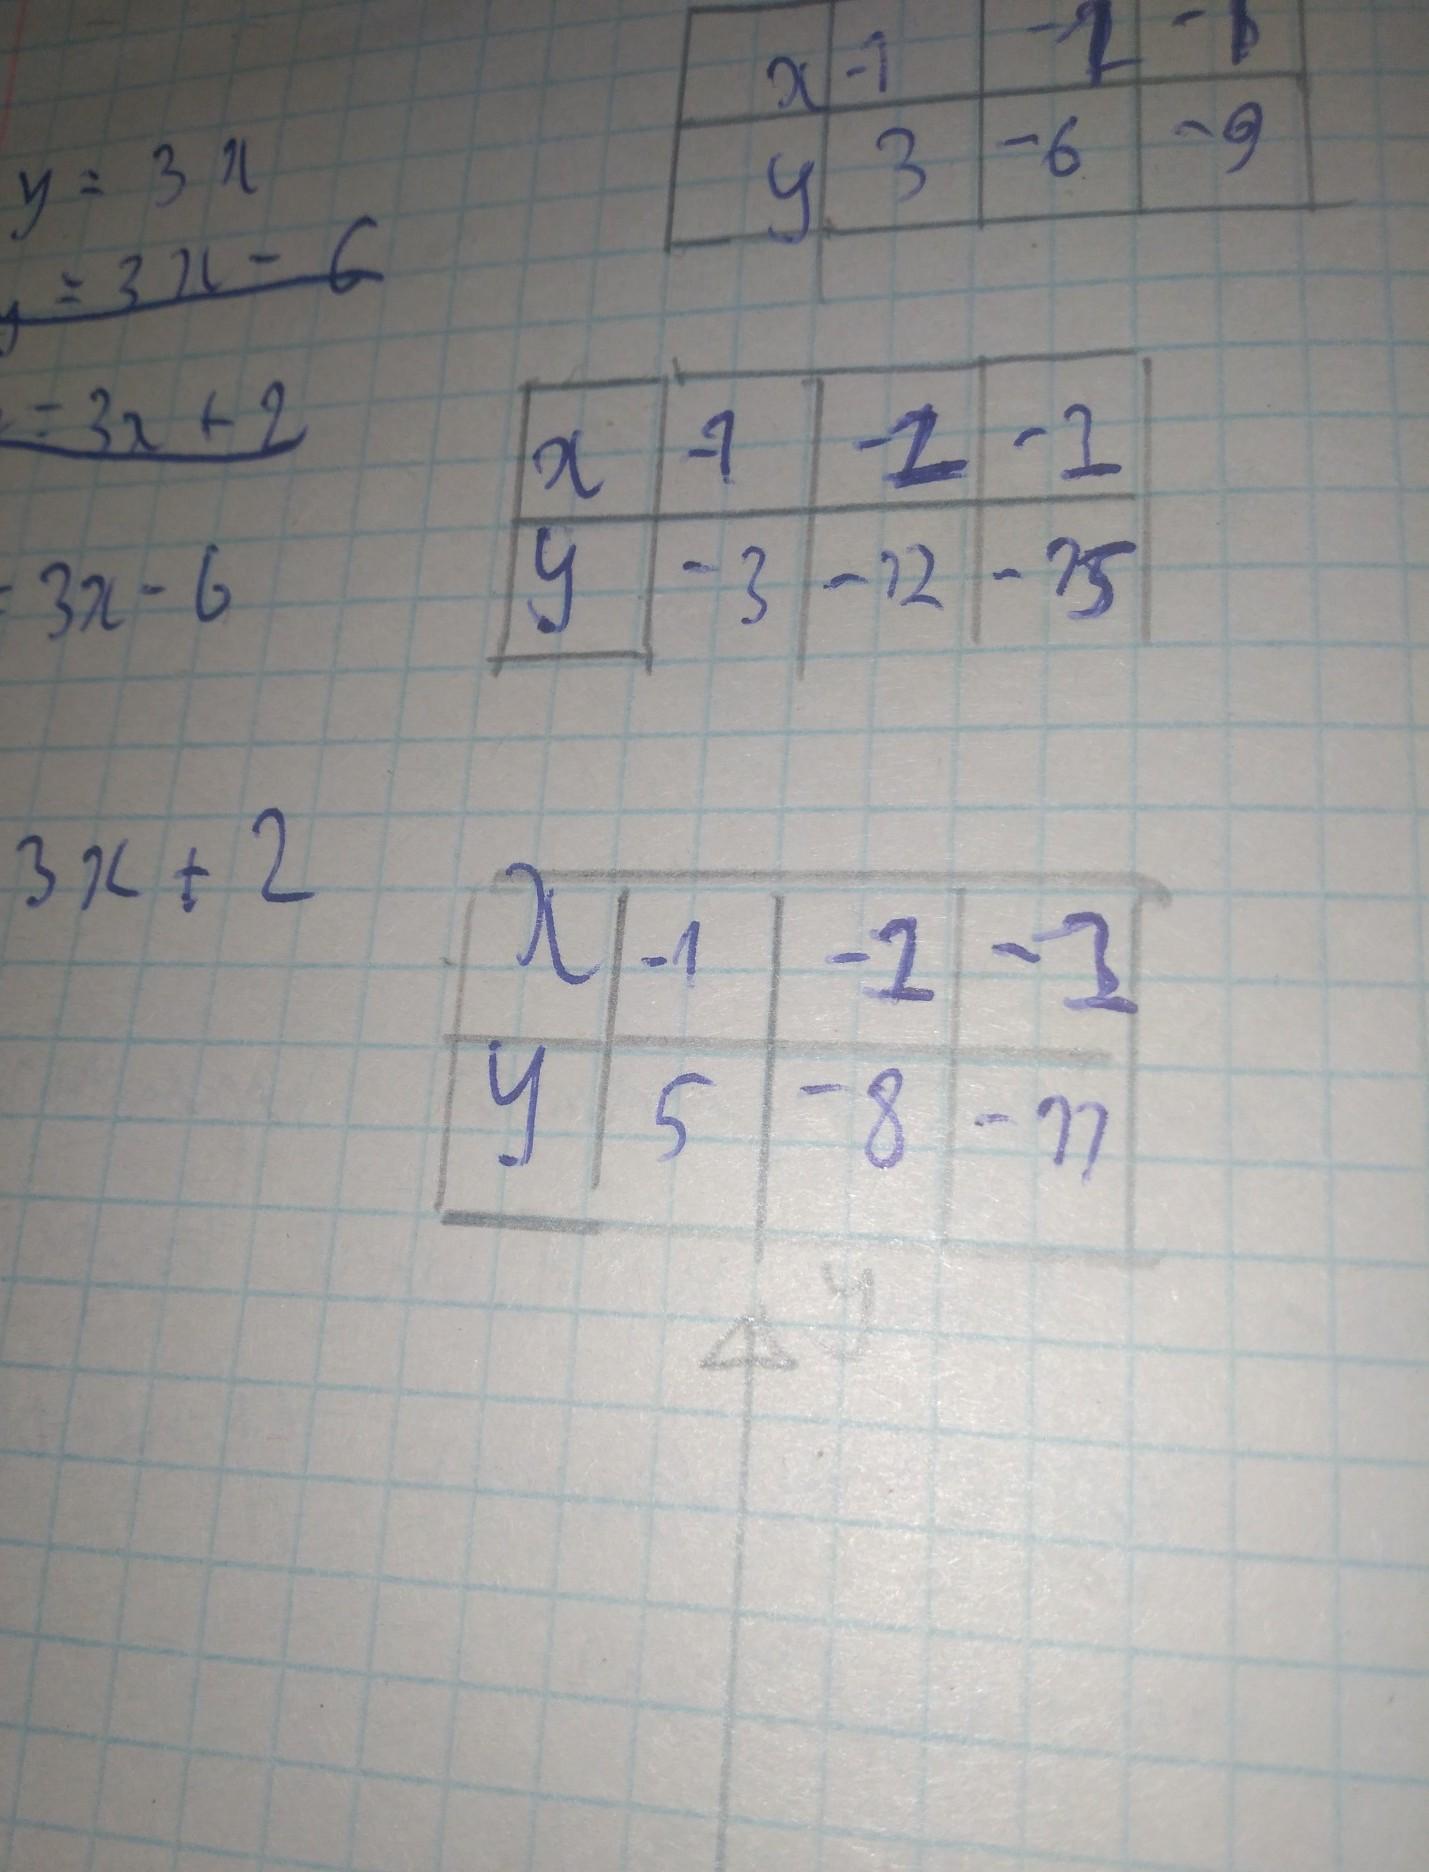 x -1 -2
y 3 -6 -9
y = 3x
y = 3x - 6
= 3x + 2
x -1 -2 -3
y -3 -12 -15
= 3x - 6
3x + 2
x -1 -2 -3
y 5 -8 -11
y